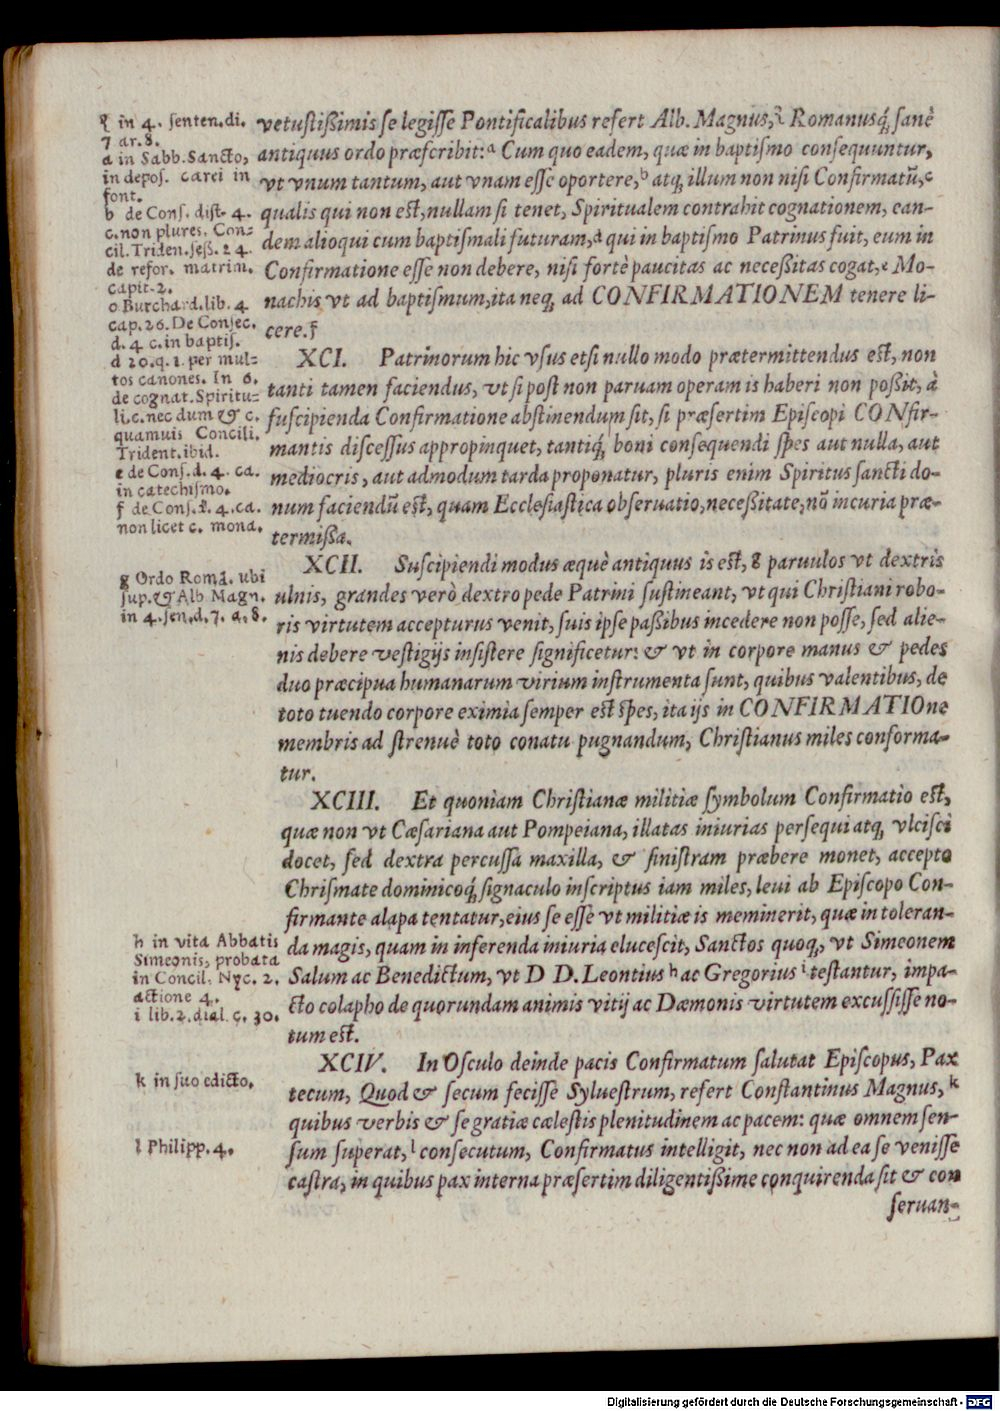 ꝛ in 4. ſenten. di.
7 ar. 8.
a in Sabb. Sancto,
in depoſ. carei in
font.
b de Conſ. diſt. 4.
c. non plures. Con-
cil. Triden. ſeß. 24.
de refor. matrim.
capit. 2.
c Burchard. lib. 4
cap. 26. De Conſec.
d. 4 c. in baptiſ.
d 20. q. 1. per mul-
tos canones. In 6.
de cognat. Spiritu-
li. c. nec dum & c.
quamuis Concili.
Trident. ibid.
e de Conſ. d. 4. ca.
in catechiſmo.
f de Conſ. d. 4. ca.
non licet c. mona.
vetuſtißimis ſe legiſſe Pontificalibus refert Alb. Magnus, Romanusq́; ſanè
antiquus ordo præſcribit:ᵃ Cum quo eadem, quæ in baptiſmo conſequuntur,
vt vnum tantum, aut vnam eſſe oportere,ᵇ atq; illum non niſi Confirmatũ,ᶜ
qualis qui non eſt, nullam ſi tenet, Spiritualem contrahit cognationem, ean-
dem alioqui cum baptiſmali futuram,ᵈ qui in baptiſmo Patrinus fuit, eum in
Confirmatione eſſe non debere, niſi fortè paucitas ac neceßitas cogat,ᵉ Mo-
nachis vt ad baptiſmum, ita neq; ad CONFIRMATIONEM tenere li-
cere.f
XCI. Patrinorum hic vſus etſi nullo modo prætermittendus eſt, non
tanti tamen faciendus, vt ſi poſt non paruam operam is haberi non poßit, à
ſuſcipienda Confirmatione abſtinendum ſit, ſi præſertim Epiſcopi CONfir-
mantis diſceſſus appropinquet, tantiq́; boni conſequendi ſpes aut nulla, aut
mediocris, aut admodum tarda proponatur, pluris enim Spiritus ſancti do-
num faciendũ eſt, quam Eccleſiaſtica obſeruatio, neceßitate, nõ incuria præ-
termißa.
g Ordo Romã. ubi
ſup. & Alb. Magn.
in 4. ſen. d. 7. a. 8.
XCII. Suſcipiendi modus æquè antiquus is eſt, g paruulos vt dextris
ulnis, grandes verò dextro pede Patrini ſuſtineant, vt qui Chriſtiani robo-
ris virtutem accepturus venit, ſuis ipſe paßibus incedere non poſſe, ſed alie-
nis debere veſtigijs inſiſtere ſignificetur: & vt in corpore manus & pedes
duo præcipua humanarum virium inſtrumenta ſunt, quibus valentibus, de
toto tuendo corpore eximia ſemper eſt ſpes, ita ijs in CONFIRMATIOne
membris ad ſtrenuè toto conatu pugnandum, Chriſtianus miles conforma-
tur.
XCIII. Et quoniam Chriſtianæ militiæ ſymbolum Confirmatio eſt,
quæ non vt Cæſariana aut Pompeiana, illatas iniurias perſequi atq; vlciſci
docet, ſed dextra percuſſa maxilla, & ſiniſtram præbere monet, accepto
Chriſmate dominicoq́; ſignaculo inſcriptus iam miles, leui ab Epiſcopo Con-
firmante alapa tentatur, eius ſe eſſe vt militiæ is meminerit, quæ in toleran-
da magis, quam in inferenda iniuria eluceſcit, Sanctos quoq;, vt Simeonem
Salum ac Benedictum, vt D D. Leontius ʰ ac Gregorius ⁱ teſtantur, impa-
cto colapho de quorundam animis vitij ac Dæmonis virtutem excuſſiſſe no-
tum eſt.
h in vita Abbatis
Simeonis, probata
in Concil. Nyc. 2.
actione 4.
i lib. 2. dial. c. 30.
XCIV. In Oſculo deinde pacis Confirmatum ſalutat Epiſcopus, Pax
tecum, Quod & ſecum feciſſe Sylueſtrum, refert Conſtantinus Magnus, ᵏ
quibus verbis & ſe gratiæ cæleſtis plenitudinem ac pacem: quæ omnem ſen-
ſum ſuperat,ˡ conſecutum, Confirmatus intelligit, nec non ad ea ſe veniſſe
caſtra, in quibus pax interna præſertim diligentißime conquirenda ſit & con
ſeruan-
k in ſuo edicto.
l Philipp. 4.
Digitalisierung gefördert durch die Deutsche Forschungsgemeinschaft - DFG